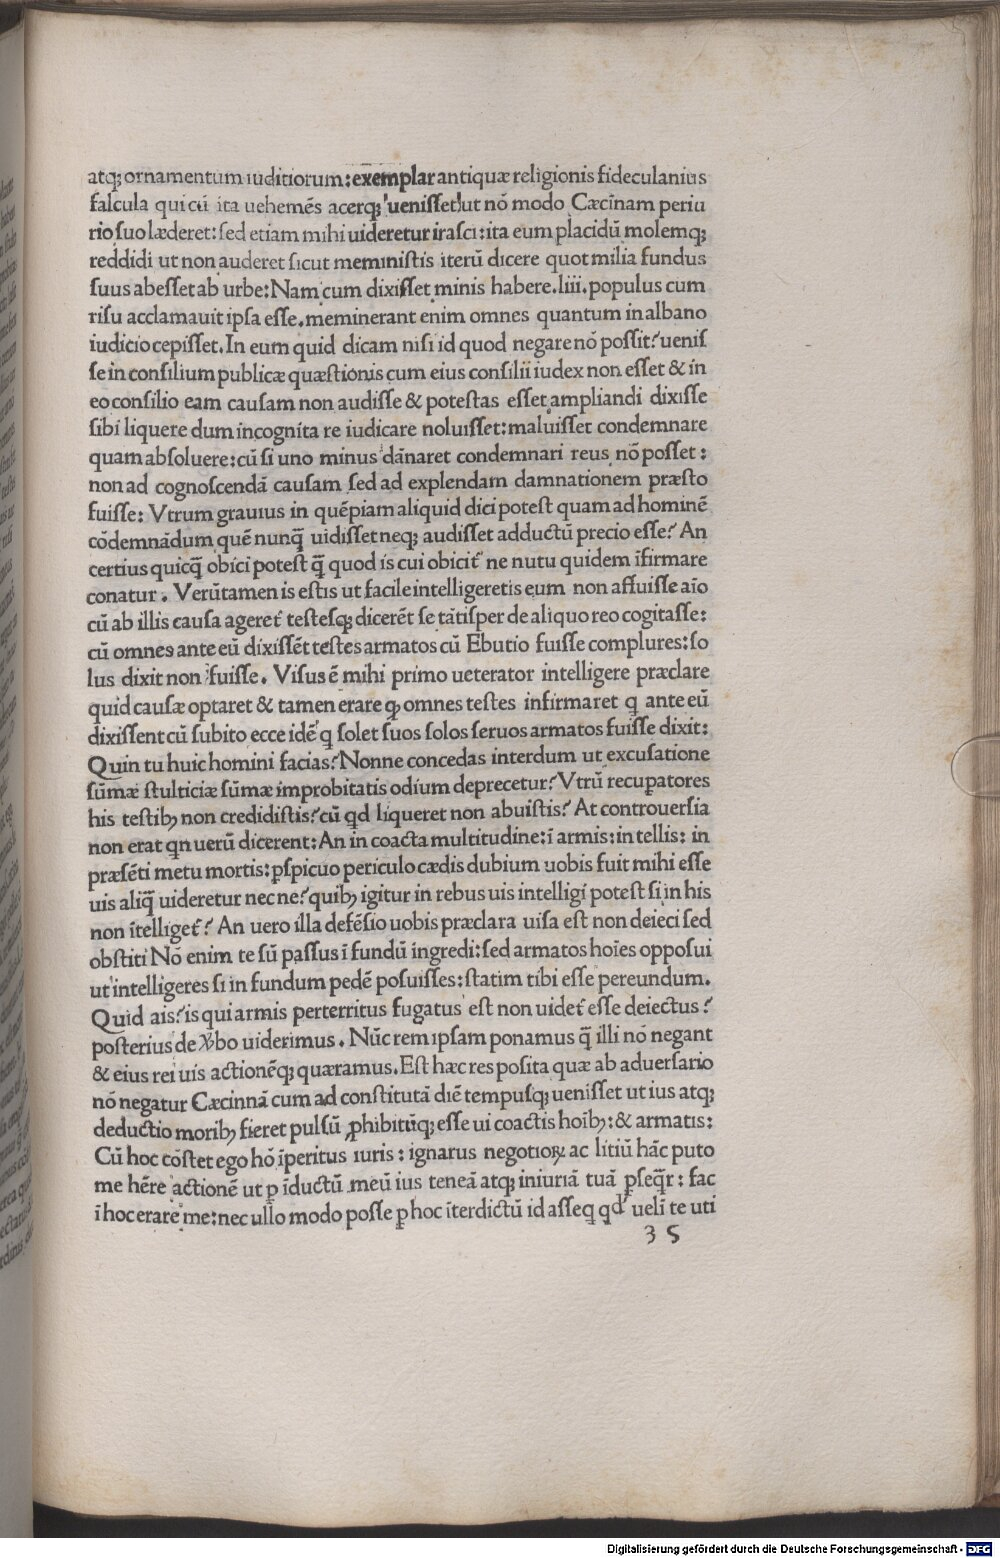 atqꝫ ornamentum iuditiorum: exemplar antiquæ religionis fideculanius
falcula qui cū ita uehemēs acerqꝫ uenisset ut nō modo Cæcīnam periu
rio suo læderet: sed etiam mihi uideretur irasci: ita eum placidū molemqꝫ
reddidi ut non auderet sicut meministis iterū dicere quot milia fundus
suus abesset ab urbe: Nam cum dixisset minis habere .liii. populus cum
risu acclamauit ipsa esse. meminerant enim omnes quantum in albano
iudicio cepisset. In eum quid dicam nisi id quod negare nō possit? uenis
se in consilium publicæ quæstionis cum eius consilii iudex non esset & in
eo consilio eam causam non audisse & potestas esset ampliandi dixisse
sibi liquere dum incognita re iudicare noluisset: maluisset condemnare
quam absoluere: cū si uno minus dānaret condemnari reus nō posset:
non ad cognoscendā causam sed ad explendam damnationem præsto
fuisse: Vtrum grauius in quēpiam aliquid dici potest quam ad hominē
cōdemnādum quē nunq̄ uidisset neqꝫ audisset adductū precio esse? An
certius quicq̄ obici potest q̄ quod is cui obicit᷑ ne nutu quidem īfirmare
conatur. Verūtamen is estis ut facile intelligeretis eum non affuisse aīo
cū ab illis causa ageret᷑ testesqꝫ dicerēt se tātisper de aliquo reo cogitasse:
cū omnes ante eū dixissēt testes armatos cū Ebutio fuisse complures: so
lus dixit non fuisse. Visus ē mihi primo ueterator intelligere præclare
quid causæ optaret & tamen erare ꝙ omnes testes infirmaret q ante eū
dixissent cū subito ecce idē q solet suos solos seruos armatos fuisse dixit:
Quin tu huic homini facias? Nonne concedas interdum ut excusatione
sūmæ stulticiæ sūmæ improbitatis odium deprecetur? Vtrū recuꝑatores
his testibꝫ non credidistis? cū qd liqueret non abuistis? At controuersia
non erat qn uerū dicerent: An in coacta multitudine: ī armis: in tellis: in
præsēti metu mortis: ꝑspicuo periculo cædis dubium uobis fuit mihi esse
uis aliq̄ uideretur nec ne? quibꝫ igitur in rebus uis intelligi potest si in his
non ītelliget᷑? An uero illa defēsio uobis præclara uisa est non deieci sed
obstiti Nō enim te sū passus ī fundū ingredi: sed armatos hoīes opposui
ut intelligeres si in fundum pedē posuisses: statim tibi esse pereundum.
Quid ais? is qui armis perterritus fugatus est non uidet᷑ esse deiectus?
posterius de v̓bo uiderimus. Nūc rem ipsam ponamus q̄ illi nō negant
& eius rei uis actionēqꝫ quæramus. Est hæc res posita quæ ab aduersario
nō negatur Cæcinnā cum ad constitutā diē tempusqꝫ uenisset ut ius atqꝫ
deductio moribꝫ fieret pulsū ꝓhibitūqꝫ esse ui coactis hoībꝫ: & armatis:
Cū hoc cōstet ego hō īperitus iuris: ignarus negotioꝝ ac litiū hāc puto
me hēre actionē ut ꝑ īductū meū ius teneā atqꝫ iniuriā tuā ꝑseq̄r: fac
ī hoc erare me: nec ullo modo posse ꝑ hoc īterdictū id asseq qd uelī te uti
35
Digitalisierung gefördert durch die Deutsche Forschungsgemeinschaft - DFG